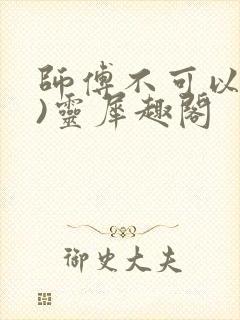 師傅不可以
)靈犀趣閣
御史大夫